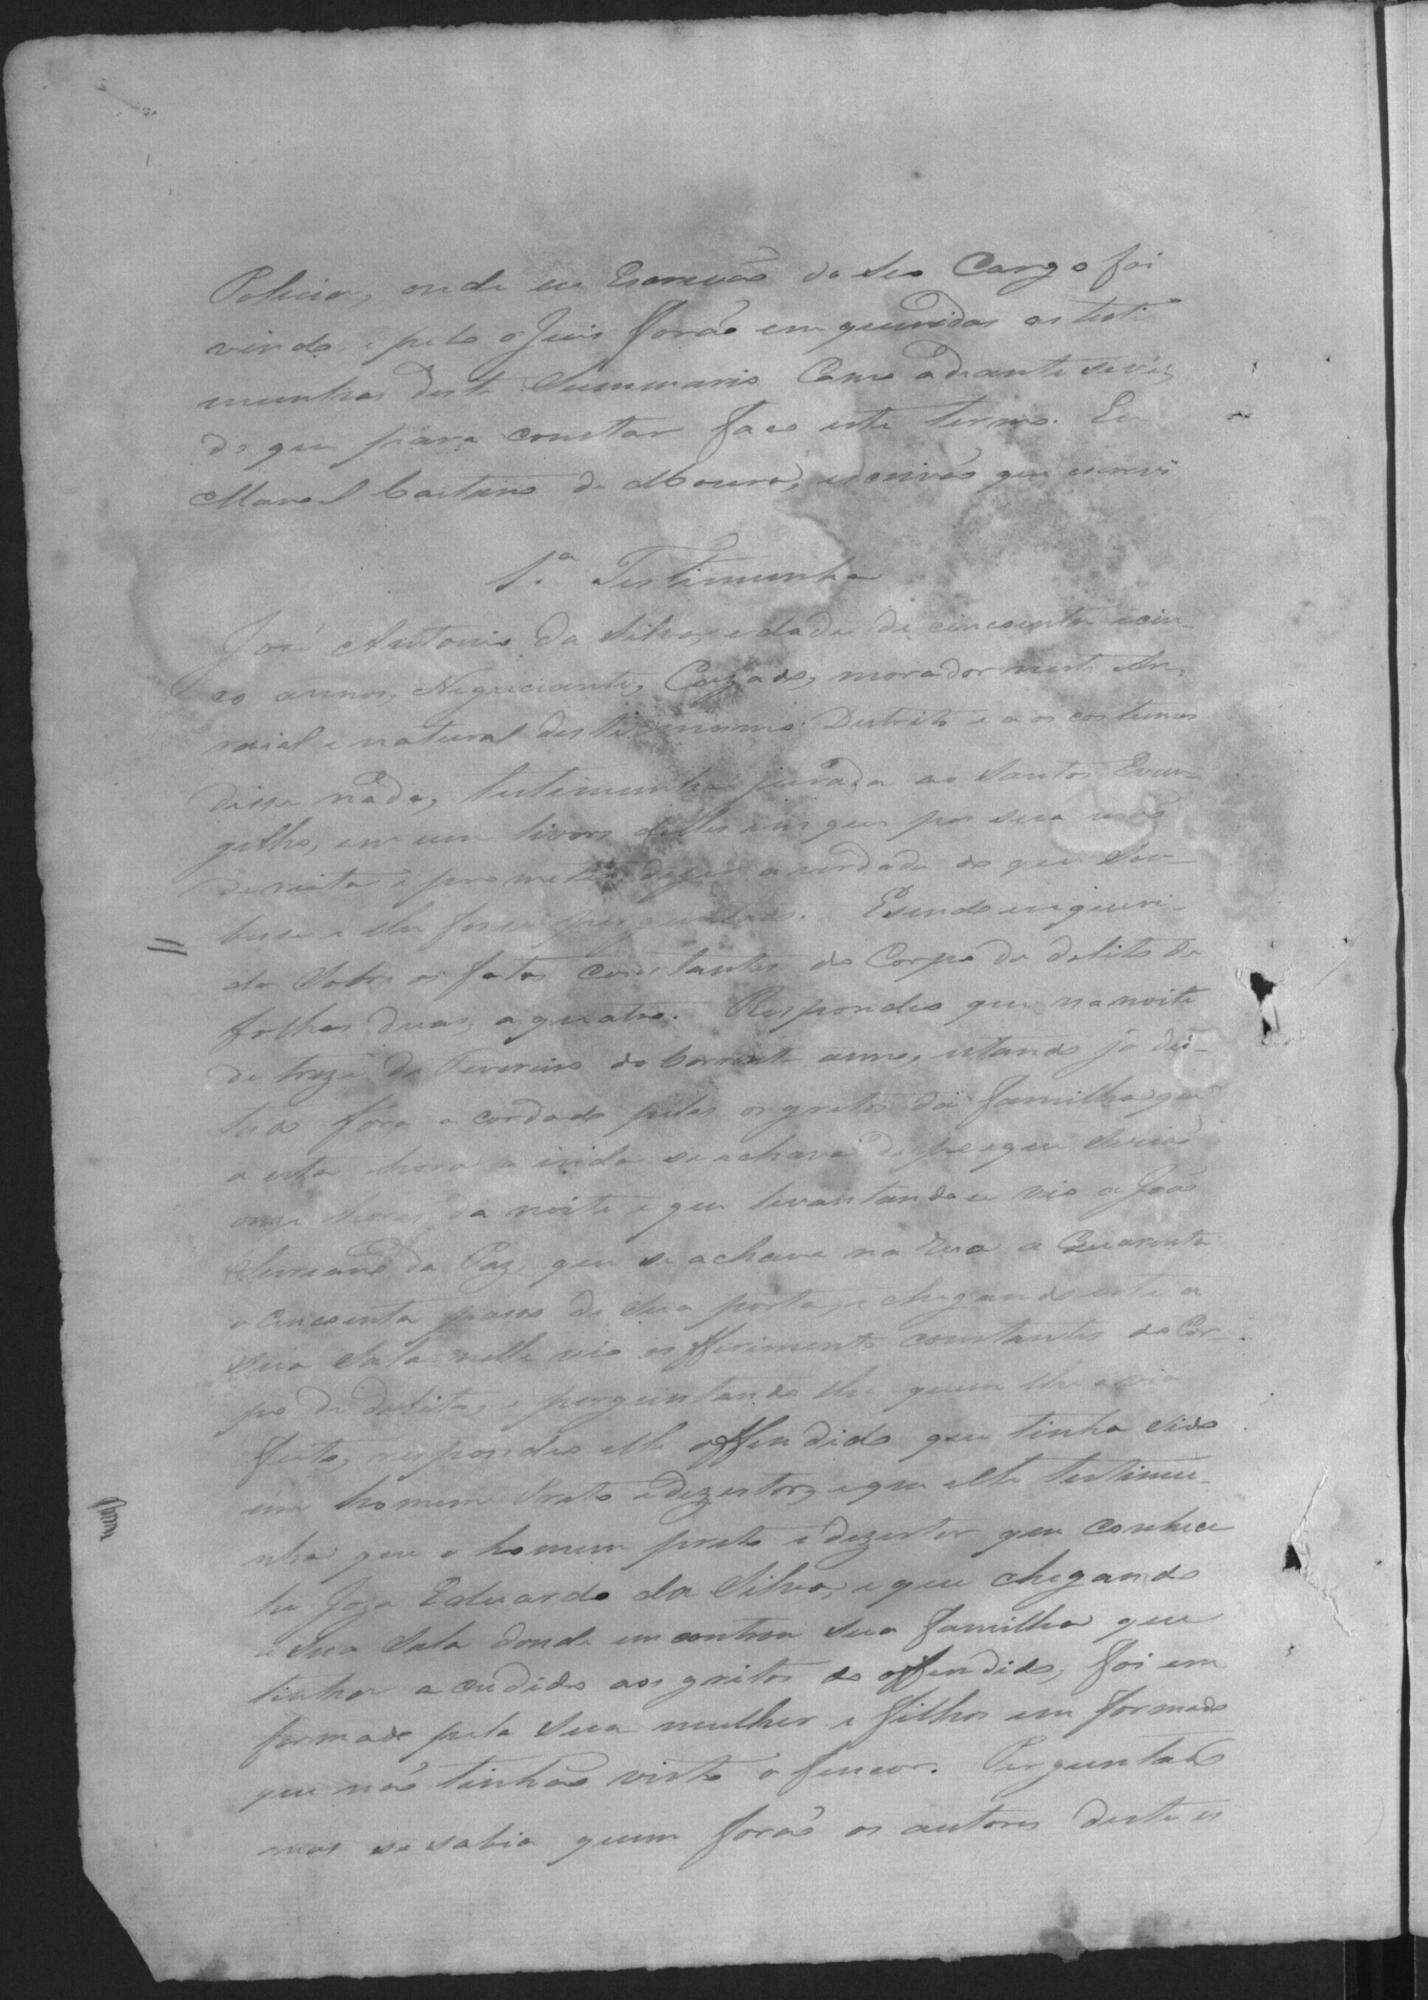 Policia, onde eu Escrivão do seo Cargo foi
vindo, e pelo o Juis forão emqueridas as testi
munhas deste Summario Como adeante se vê,
do que para constar faço este termo. Eu
Manoel Caetano de Moura, escrivão que escrevi
1.ª Testimunha
José Antonio da Silva, edade de cincoenta e cin-
co annos, Negociante, Cazado, morador neste Ar-
raial e natural deste mesmo Destrito e aos costumes
disse nada, testimunha jurada ao Santos Evan-
gelhos, em um livro delles em que pos sua mão
dereita e prometeo dizer a verdade do que sou-
besse e lhe fosse perguntado. Esendo enqueri-
do sobre os fatos constantes do Corpo de delito de
folhas duas a quatro. Respondeo que na noite
de treze de Fevereiro do Corrente anno, estando já dei-
tado fora acordado pelos os gritos da familha que
a esta hora a inda se achava de pe e que serião
onze horas da noite e que levantando se vio a João
da Paz, que se achava na Rua a Quarenta
a Cincoenta passos de sua porta, e chegando este a
sua sala nelle vio os fferimentos constantes do Cor-
po de delito, e perguntando lhe quem lhe avia
feito, respondeo elle offendido que tinha sido
um homem Preto e dezertor, e que elle testimu-
nha que o homem preto e dezertor que conhece
he Joze Eduardo da Silva, e que chegando
a sua sala donde encontrou sua familha que
tinha acudido aos gritos do offendido, foi em
formado pela sua mulher e filhos em formado
que não tinhão visto o fencor. Perguntado
mais se sabia quem forão os autores deste es